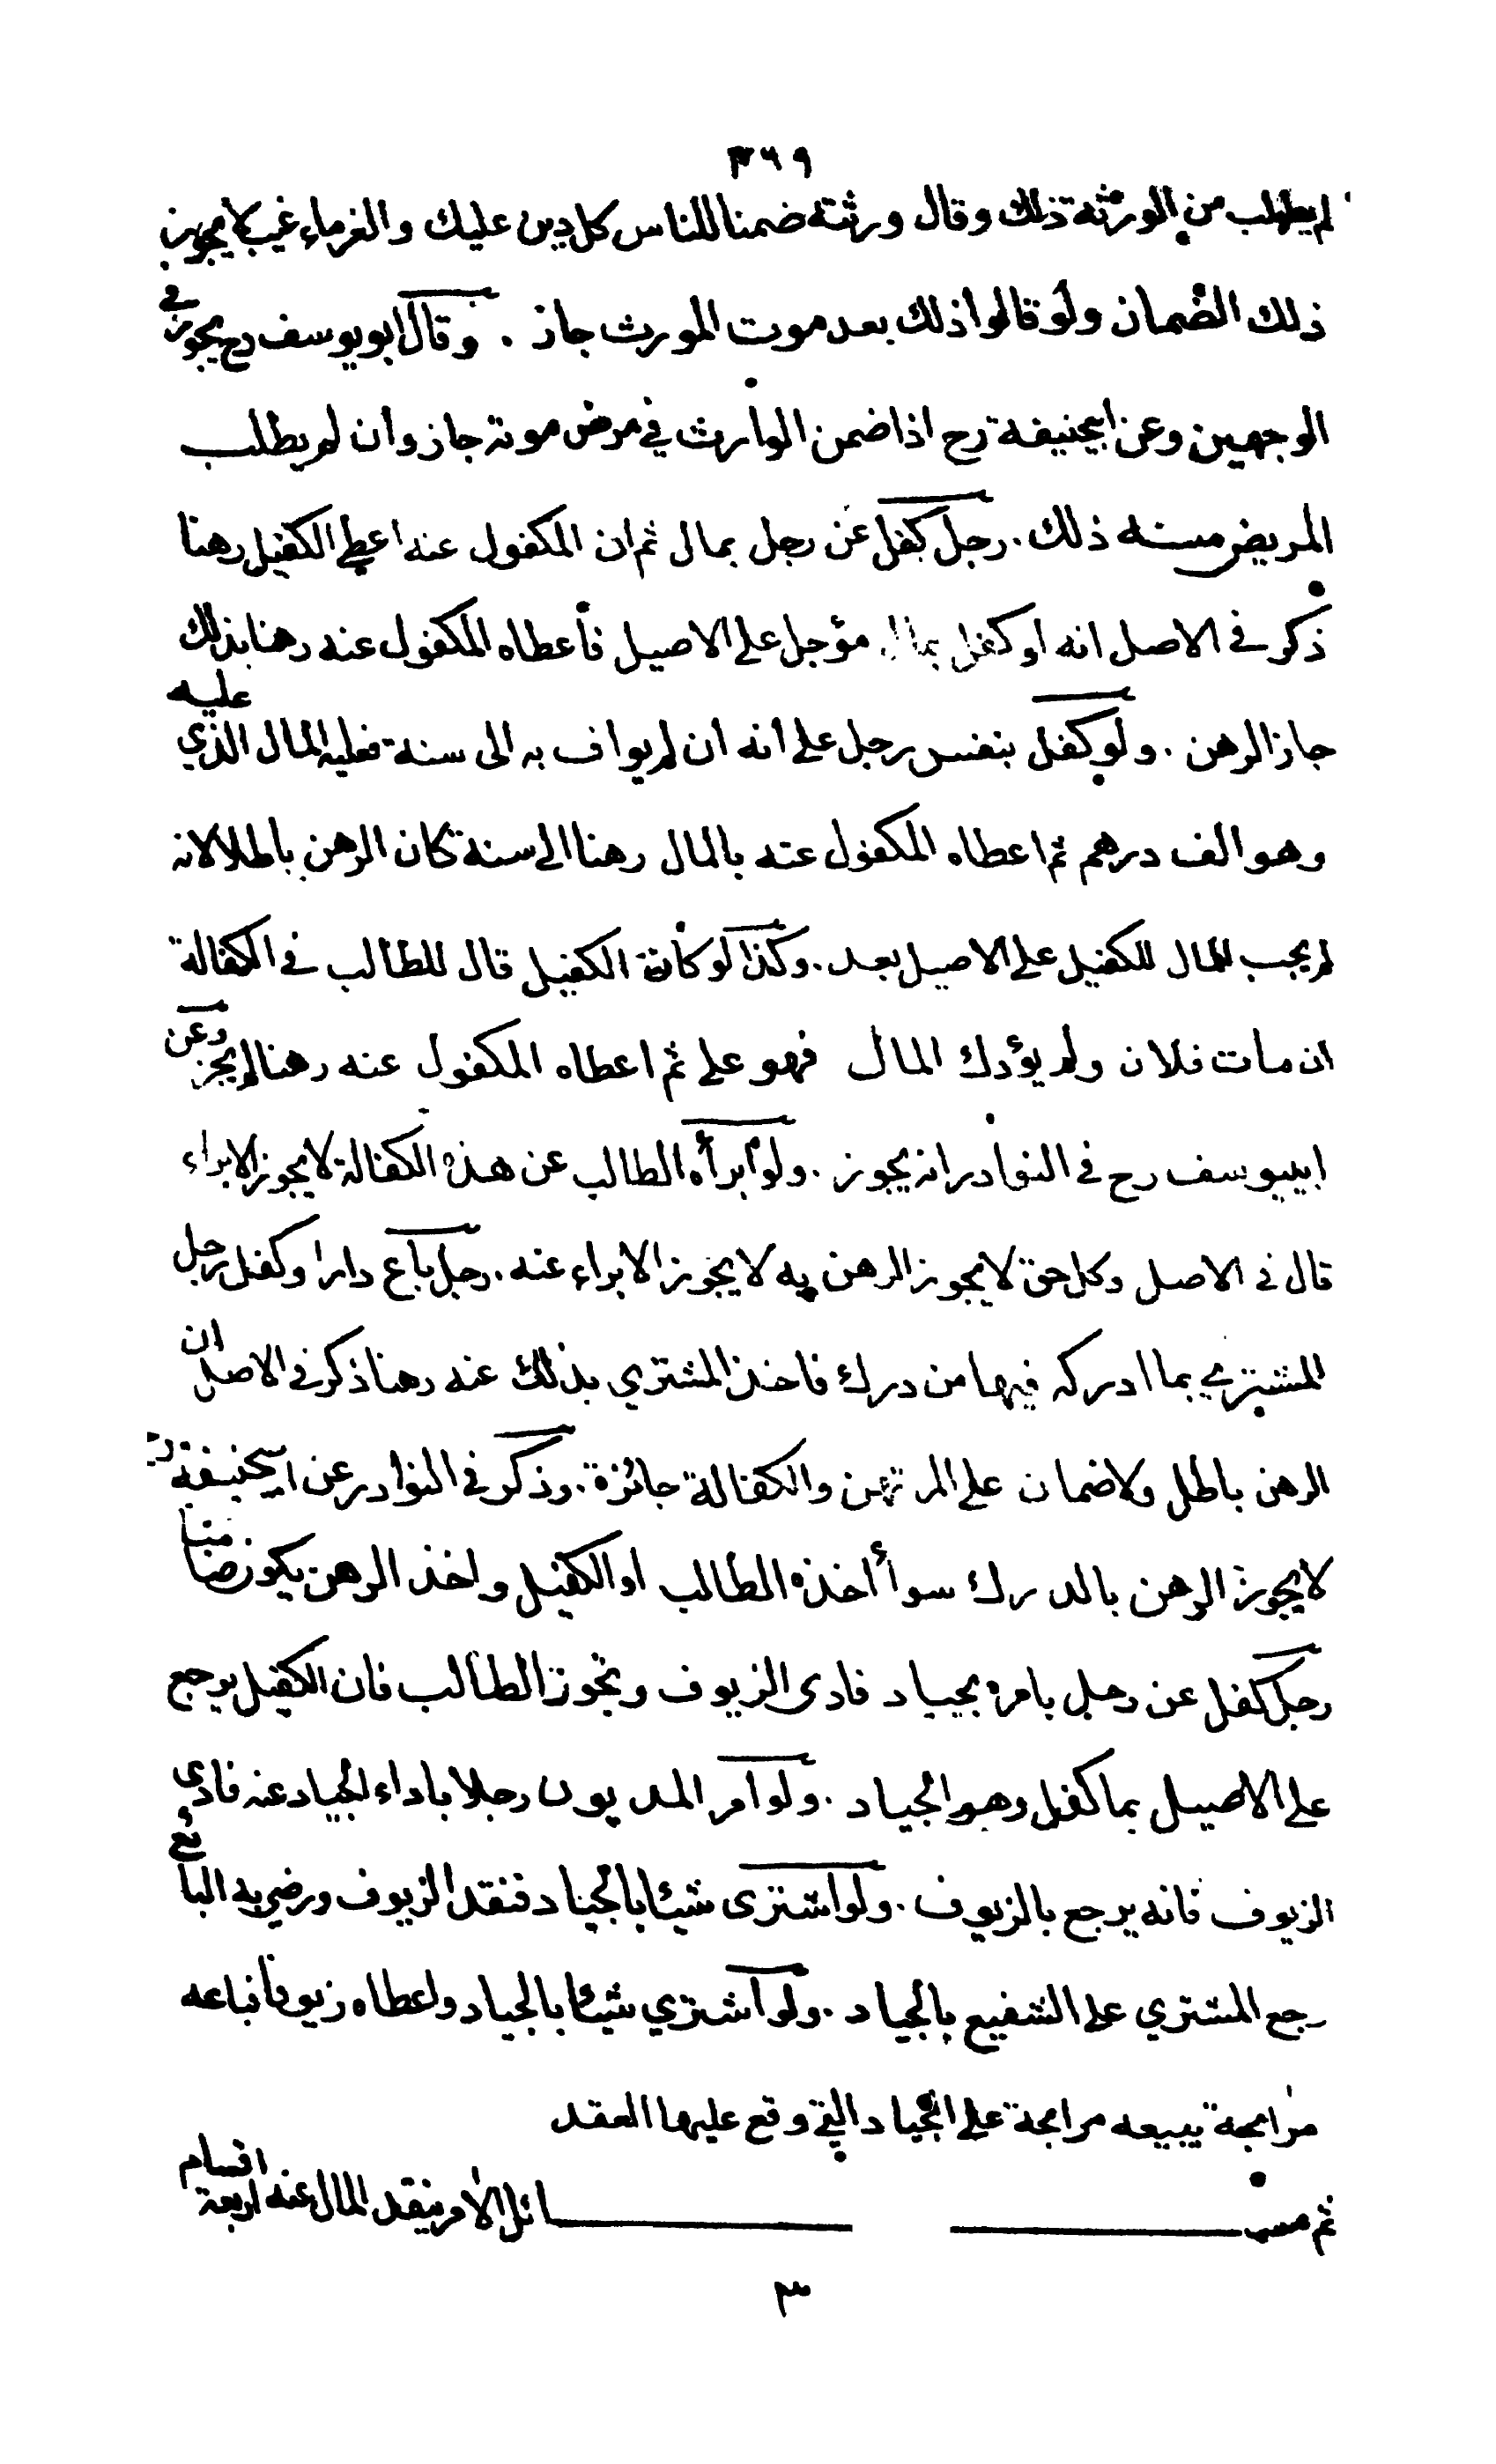 ٣٦٩
لم يطلب من الورثة ذلك وقال ورثته ضمنا للناس كل دين عليك والغرماء غيب لا يجوز
ذلك الضمان ولو قالوا ذلك بعد موت المورث جاز . وقال ابو يوسف رح يجوز في
الوجهين وعن ابيحنيفة رح اذا ضمن الوارث في مرض موته جاز وان لم يطلب
المريض منه ذلك . رجل كفل عن رجل بمال ثم ان المكفول عنه اعطى الكفيل رهنا
ذكر في الاصل انه لو كفل بمال مؤجل على الاصيل فأعطاه المكفول عنه رهنا بذلك
جاز الرهن . ولو كفل بنفس رجل على انه ان لم يواف به الى سنة فعليه المال الذي عليه
وهو الف درهم ثم اعطاه المكفول عنه بالمال رهنا الى سنة كان الرهن باطلا لانه
لم يجب المال للكفيل على الاصيل بعد . وكذا لو كان الكفيل قال للطالب في الكفالة
ان مات فلان ولم يؤدك المال فهو علي ثم اعطاه المكفول عنه رهنا لم يجز وعن
ابييوسف رح في النوادر انه يجوز . ولو أبرأه الطالب عن هذه الكفالة لا يجوز الابراء
قال في الاصل وكل حق لا يجوز الرهن به لا يجوز الابراء عنه . رجل باع دارا وكفل رجل
للمشتري بما ادركه فيها من درك فاخذ المشتري بذلك عنه رهنا ذكر في الاصل ان
الرهن باطل ولا ضمان على المرتهن والكفالة جائزة . وذكر في النوادر عن ابيحنيفة رح
لا يجوز الرهن بالدرك سوأ أخذه الطالب او الكفيل واخذ الرهن يكون ضامنا
رجل كفل عن رجل بامره بجياد فادى الزيوف وتجوز الطالب فان الكفيل يرجع
على الاصيل بما كفل وهو الجياد . ولو امر المديون رجلا باداء الجياد عنه فادى
الزيوف فانه يرجع بالزيوف . ولو اشترى شيئا بالجياد فنقد الزيوف ورضي به البائع
رجع المشتري على الشفيع بالجياد . ولو اشتري شيئا بالجياد واعطاه زيوفا فباعه
مرابحة يبيعه مرابحة على الجياد التي وقع عليها العقد
ثم مسائل الامر بنقد المال عنه اربعة اقسام
٣